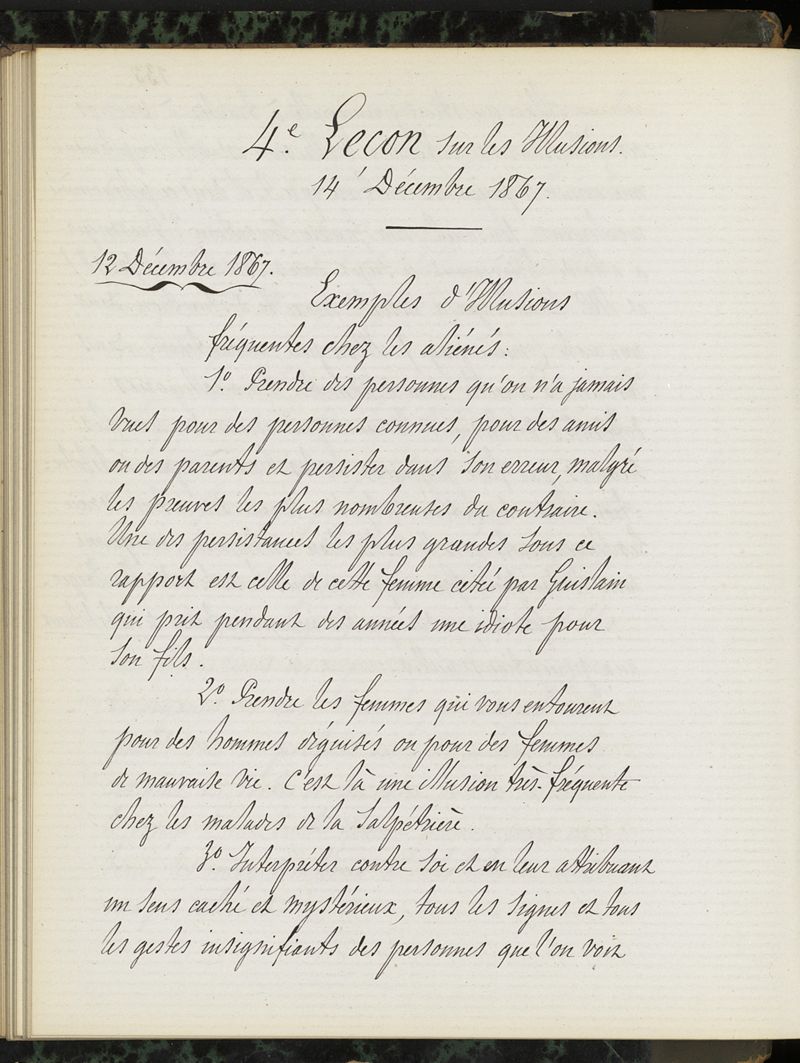 4e. Leçon sur les Illusions.
14 Décembre 1867.
12 Décembre 1867.
Exemples d'Illusions
fréquentes chez les aliénés :
1o. Prendre des personnes qu'on n'a jamais
vues pour des personnes connues, pour des amis
ou des parents et persister dans son erreur, malgré
les preuves les plus nombreuses du contraire.
Une des persistances les plus grandes sous ce
rapport est celle de cette femme citée par Guislain
qui prit pendant des années une idiote pour
son fils.
2o. Prendre les femmes qui vous entourent
pour des hommes déguisés ou pour des femmes
de mauvaise vie. C'est là une illusion très-fréquente
chez les malades de la Salpétrière.
3o. Interpréter contre soi et en leur attribuant
un sens caché et mystérieux, tous les signes et tous
les gestes insignifiants des personnes que l'on voit